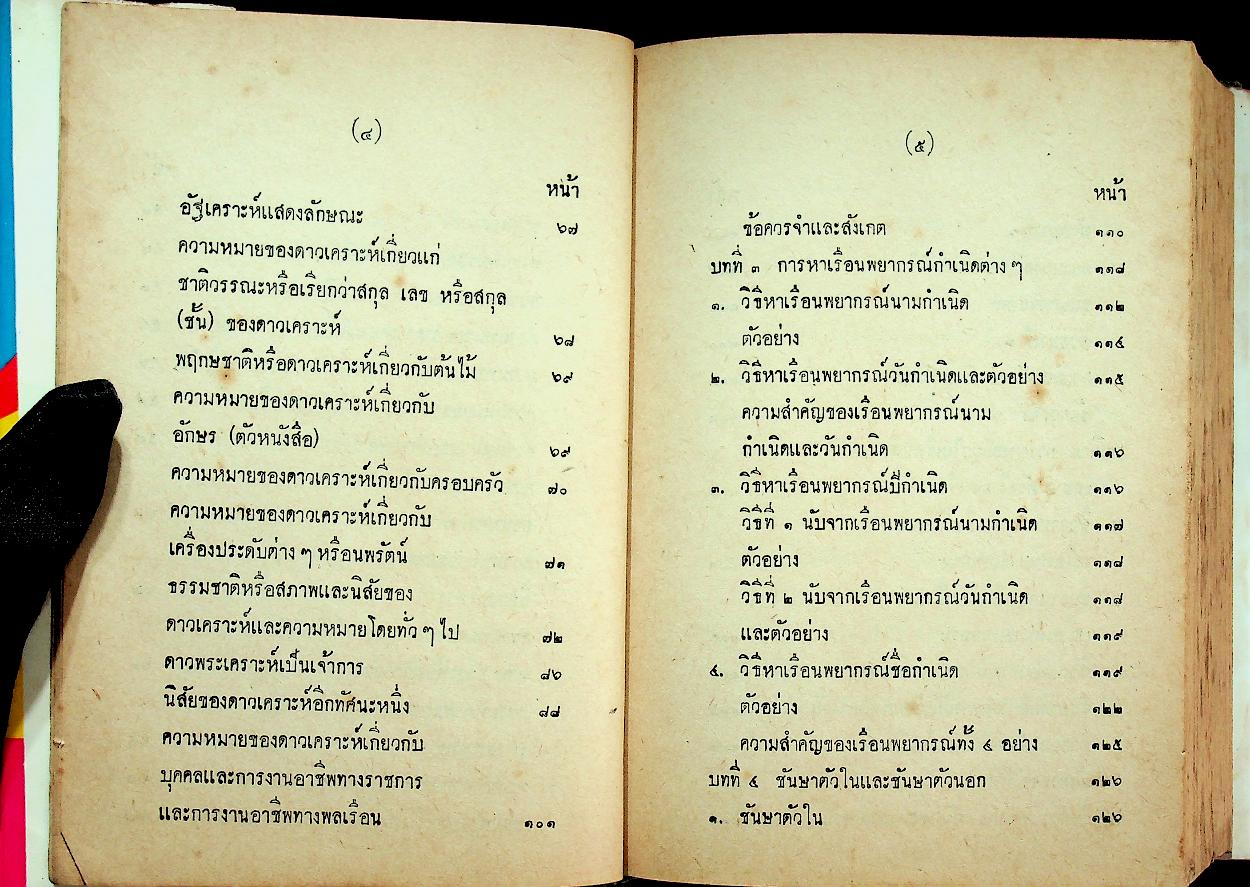 (๔)
หน้า
อัฐเคราะห์แสดงลักษณะ ๖๗
ความหมายของดาวเคราะห์เกี่ยวแก่
ชาติวรรณะหรือเรียกว่าสกุล เลข หรือสกุล
(ชั้น) ของดาวเคราะห์ ๖๘
พฤกษชาติหรือดาวเคราะห์เกี่ยวกับต้นไม้ ๖๙
ความหมายของดาวเคราะห์เกี่ยวกับ
อักษร (ตัวหนังสือ) ๖๙
ความหมายของดาวเคราะห์เกี่ยวกับครอบครัว ๗๐
ความหมายของดาวเคราะห์เกี่ยวกับ
เครื่องประดับต่าง ๆ หรือนพรัตน์ ๗๑
ธรรมชาติหรือสภาพและนิสัยของ
ดาวเคราะห์และความหมายโดยทั่ว ๆ ไป ๗๒
ดาวพระเคราะห์เป็นเจ้าการ ๘๖
นิสัยของดาวเคราะห์อีกทัศนะหนึ่ง ๘๘
ความหมายของดาวเคราะห์เกี่ยวกับ
บุคคลและการงานอาชีพทางราชการ
และการงานอาชีพทางพลเรือน ๑๐๑
(๕)
หน้า
ข้อควรจำและสังเกต ๑๑๐
บทที่ ๓ การหาเรือนพยากรณ์กำเนิดต่าง ๆ ๑๑๘
๑. วิธีหาเรือนพยากรณ์นามกำเนิด ๑๑๒
ตัวอย่าง ๑๑๔
๒. วิธีหาเรือนพยากรณ์วันกำเนิดและตัวอย่าง ๑๑๕
ความสำคัญของเรือนพยากรณ์นาม
กำเนิดและวันกำเนิด ๑๑๖
๓. วิธีหาเรือนพยากรณ์ปีกำเนิด ๑๑๖
วิธีที่ ๑ นับจากเรือนพยากรณ์นามกำเนิด ๑๑๗
ตัวอย่าง ๑๑๘
วิธีที่ ๒ นับจากเรือนพยากรณ์วันกำเนิด ๑๑๘
และตัวอย่าง ๑๑๙
๔. วิธีหาเรือนพยากรณ์ชื่อกำเนิด ๑๑๙
ตัวอย่าง ๑๒๒
ความสำคัญของเรือนพยากรณ์ทั้ง ๔ อย่าง ๑๒๕
บทที่ ๔ ชันษาตัวในและชันษาตัวนอก ๑๒๖
๑. ชันษาตัวใน ๑๒๖